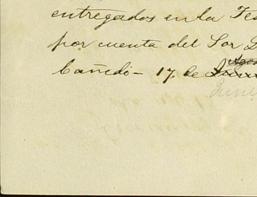 entregados en la Te
por cuenta del Sor D
Cañedo - 17. de
Agos
Juni